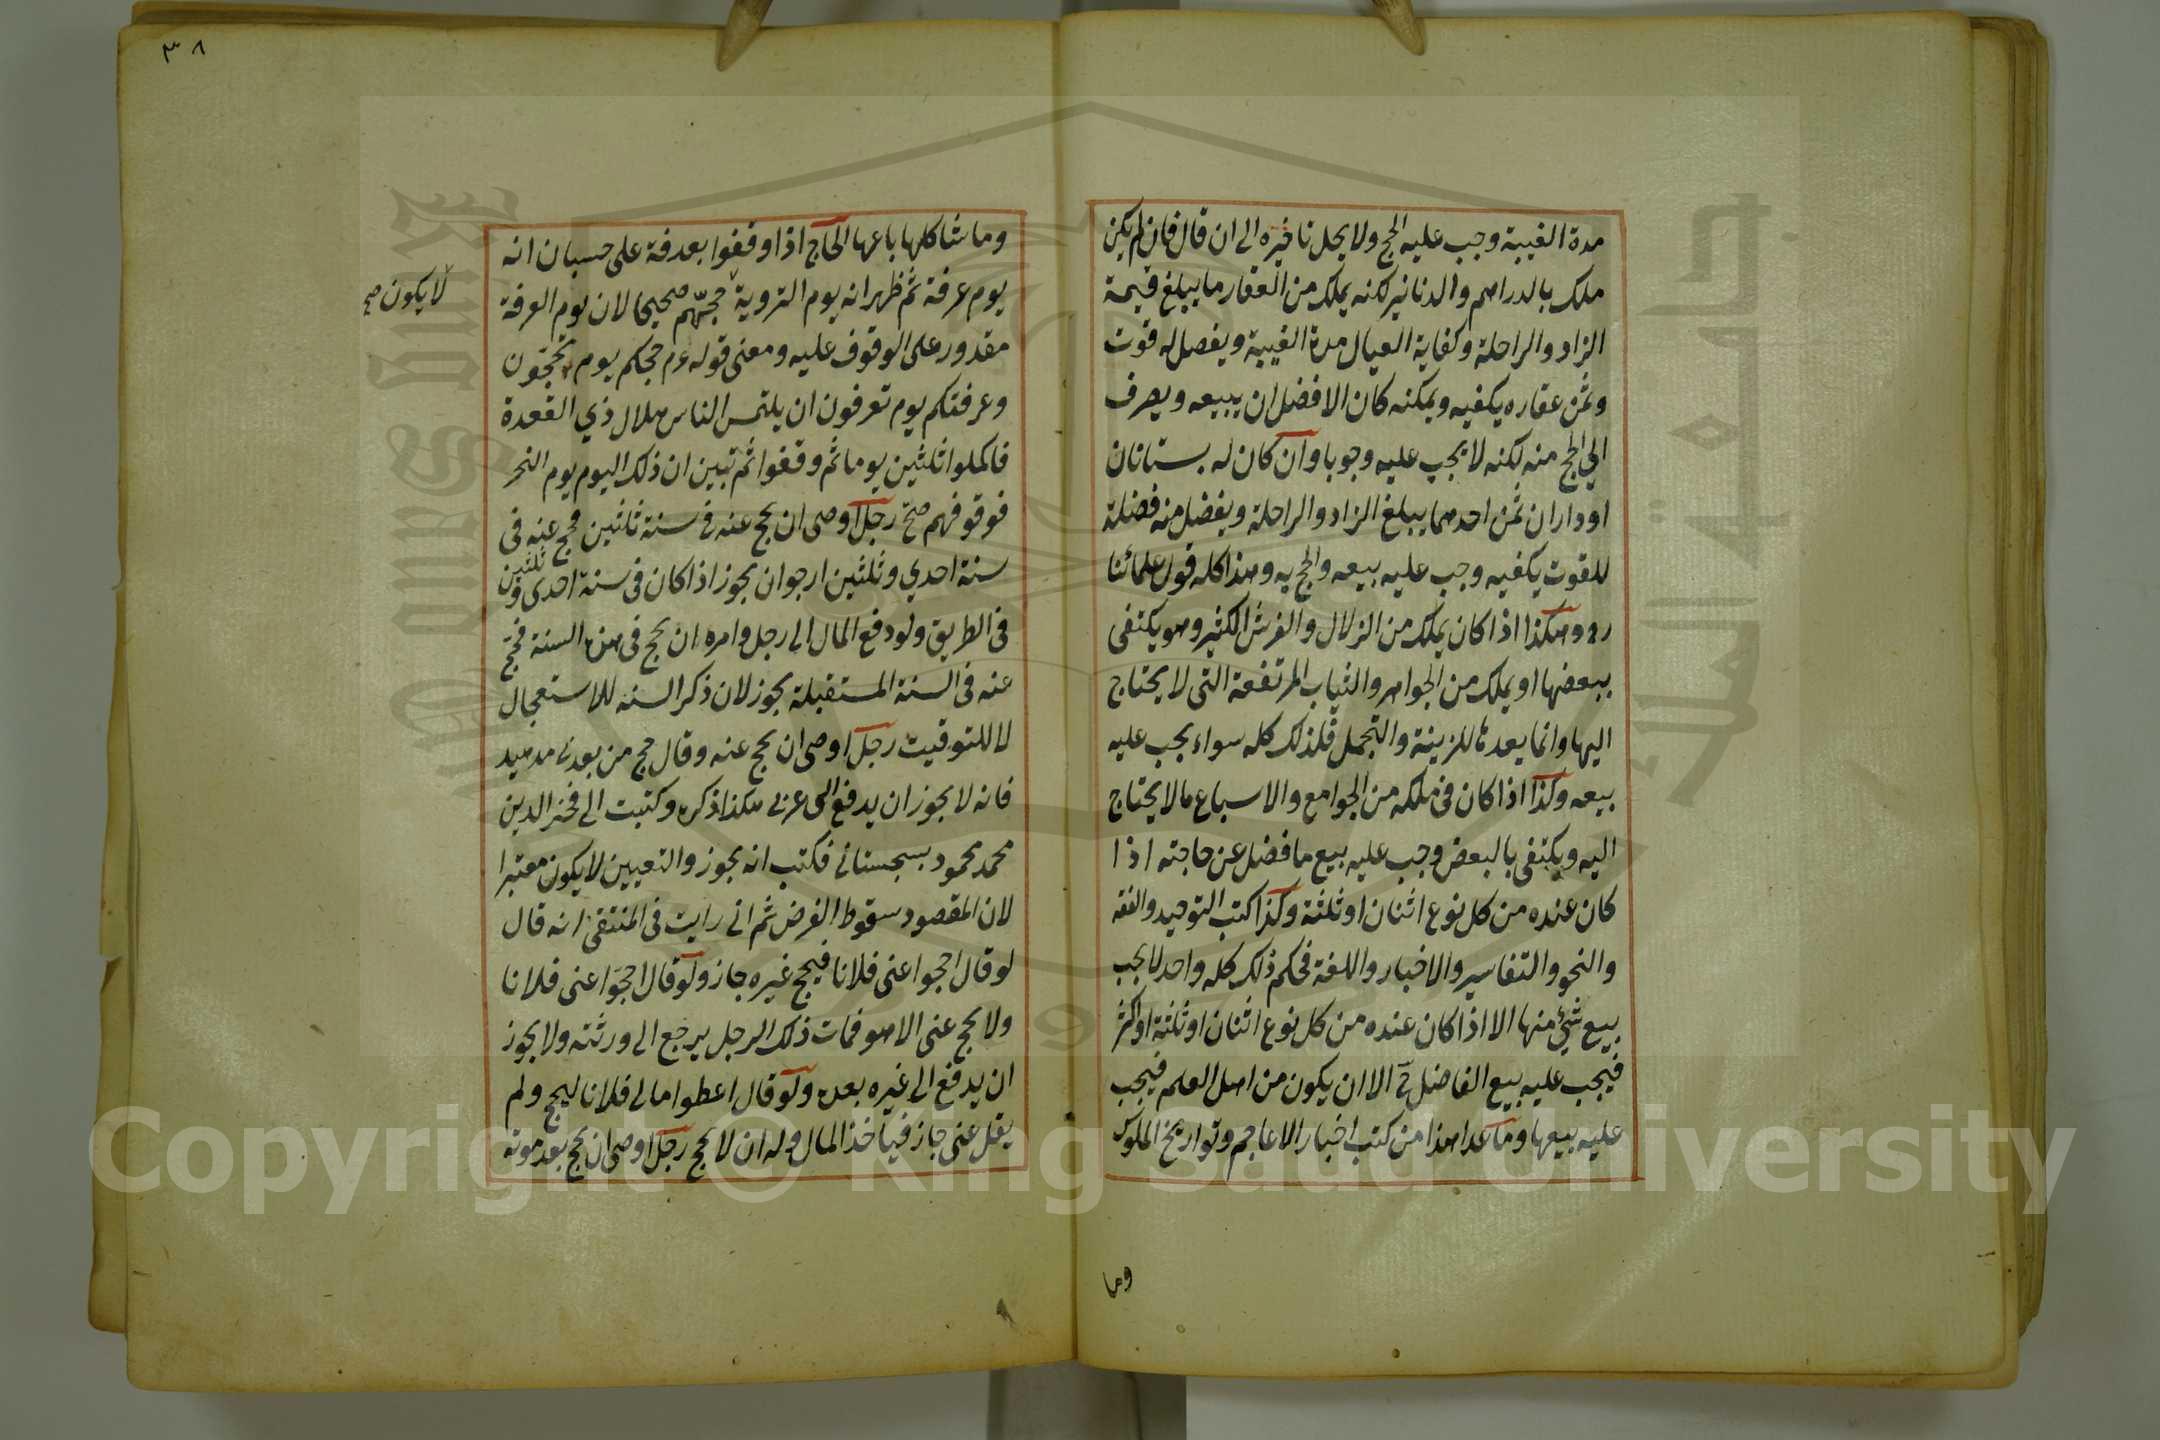 مدة الغيبة وجب عليه الحج ولا يحل تاخيره الى ان قال فان لم يكن
ملك بالدراهم والدنانير لكنه يملك من العقار ما يبلغ قيمة
الزاد والراحلة وكفاية العيال مدة الغيبة ويفصل له قوت
وثمن عقاره يكفيه ويمكنه كان الافضل ان يبيعه ويصرف
الي الحج منه لكنه لا يجب عليه وجوبا وان كان له بستانان
او داران ثمن احدهما يبلغ الزاد والراحلة ويفضل منه فضلة
للقوت يكفيه وجب عليه بيعه والحج به وهذا كله قول علمائنا
رو وهكذا اذا كان يملك من الزلال والفرش الكثير وهو يكتفى
ببعضها او يملك من الجواهر والثياب المرتفعة التى لا يحتاج
اليها وانما يعدها للزينة والتجمل فلذلك كله سواء يجب عليه
بيعه وكذا اذا كان فى ملكه من الجوامع والاسباع مالا يحتاج
اليه ويكتفى بالبعض وجب عليه بيع ما فضل عن حاجته اذا
كان عنده من كل نوع اثنان او ثلثة وكذا كتب التوحيد والفقه
والنحو والتفاسير والاخبار واللغة فحكم ذلك كله واحد لا يجب
بيع شئ منها الا اذا كان عنده من كل نوع اثنان او ثلثة او اكثر
فيجب عليه بيع الفاضل ح الا ان يكون من اهل العلم فيجب
عليه بيعها وما عدا هذا من كتب اخبار الاعاجم وتواريخ الملوك
وما
٣٨
وما شاكلها باعها الحاج اذا وقفوا بعرفة على حسبان انه
يوم عرفة ثم ظهر انه يوم التروية حجهم صحيحا لان يوم العرفة
لا يكون صح
مقدور على الوقوف عليه ومعنى قوله عم حجكم يوم تحجون
وعرفتكم يوم تعرفون ان يلتمس الناس هلال ذي القعدة
فاكملوا ثلثين يوما ثم وقفوا ثم تبين ان ذلك اليوم يوم النحر
فوقوفهم صح رجل اوصى ان يحج عنه فى سنة ثلثين فحج عنه فى
سنة احدي وثلثين ارجو ان يجوز اذا كان فى سنة احدى وثلثين
فى الطريق ولو دفع المال الى رجل وامره ان يحج فى هذه السنة فحج
عنه فى السنة المستقبلة يجوز لان ذكر السنه للاستعجال
لا للتوقيت رجل اوصى ان يحج عنه وقال حج من بعدى
فانه لا يجوز ان يدفع الى هكذا ذكره وكتبت الى فخر الدين
محمد محمود سجستانى فكتب انه يجوز والتعيين لا يكون معتبرا
لان المقصود سقوط الفرض ثم انى رايت فى المنتقى انه قال
لو قال احجوا عنى فلانا فيحج غيره جاز ولو قال احجوا عنى فلانا
ولا يحج عنى الا هو فمات ذلك الرجل يرجع الى ورثته ولا يجوز
ان يدفع الى غيره بعده ولو قال اعطوا مالى فلانا ليحج ولم
يقل عنى جاز فياخذ المال وله ان لا يحج رجل اوصى ان يحج بعد موته
Copyright © King Saud University